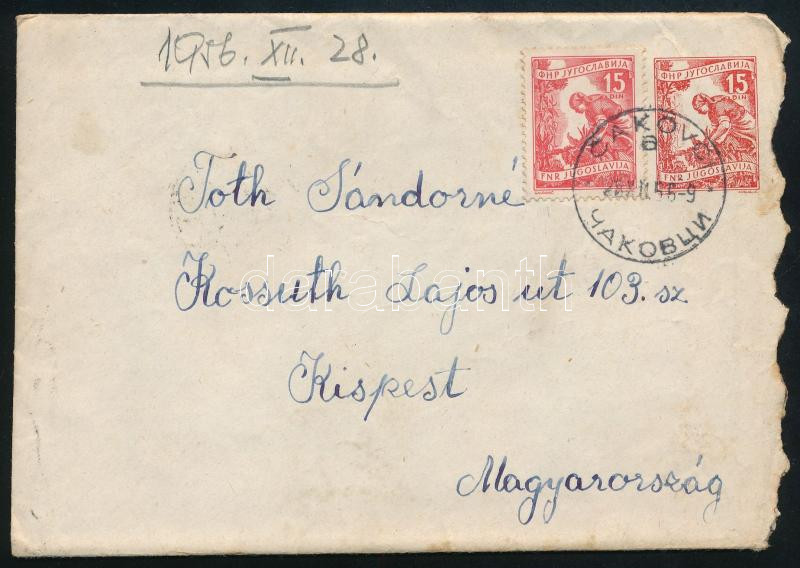 1956. XII. 28.
ФНР ЈУГОСЛАВИЈА
15
DIN
FNR JUGOSLAVIJA
ФНР ЈУГОСЛАВИЈА
15
DIN
FNR JUGOSLAVIJA
ČAKOVCI
ЧАКОВЦИ
Toth Sándorné
Kossuth Lajos ut 103. sz
Kispest
Magyarország
darabanth